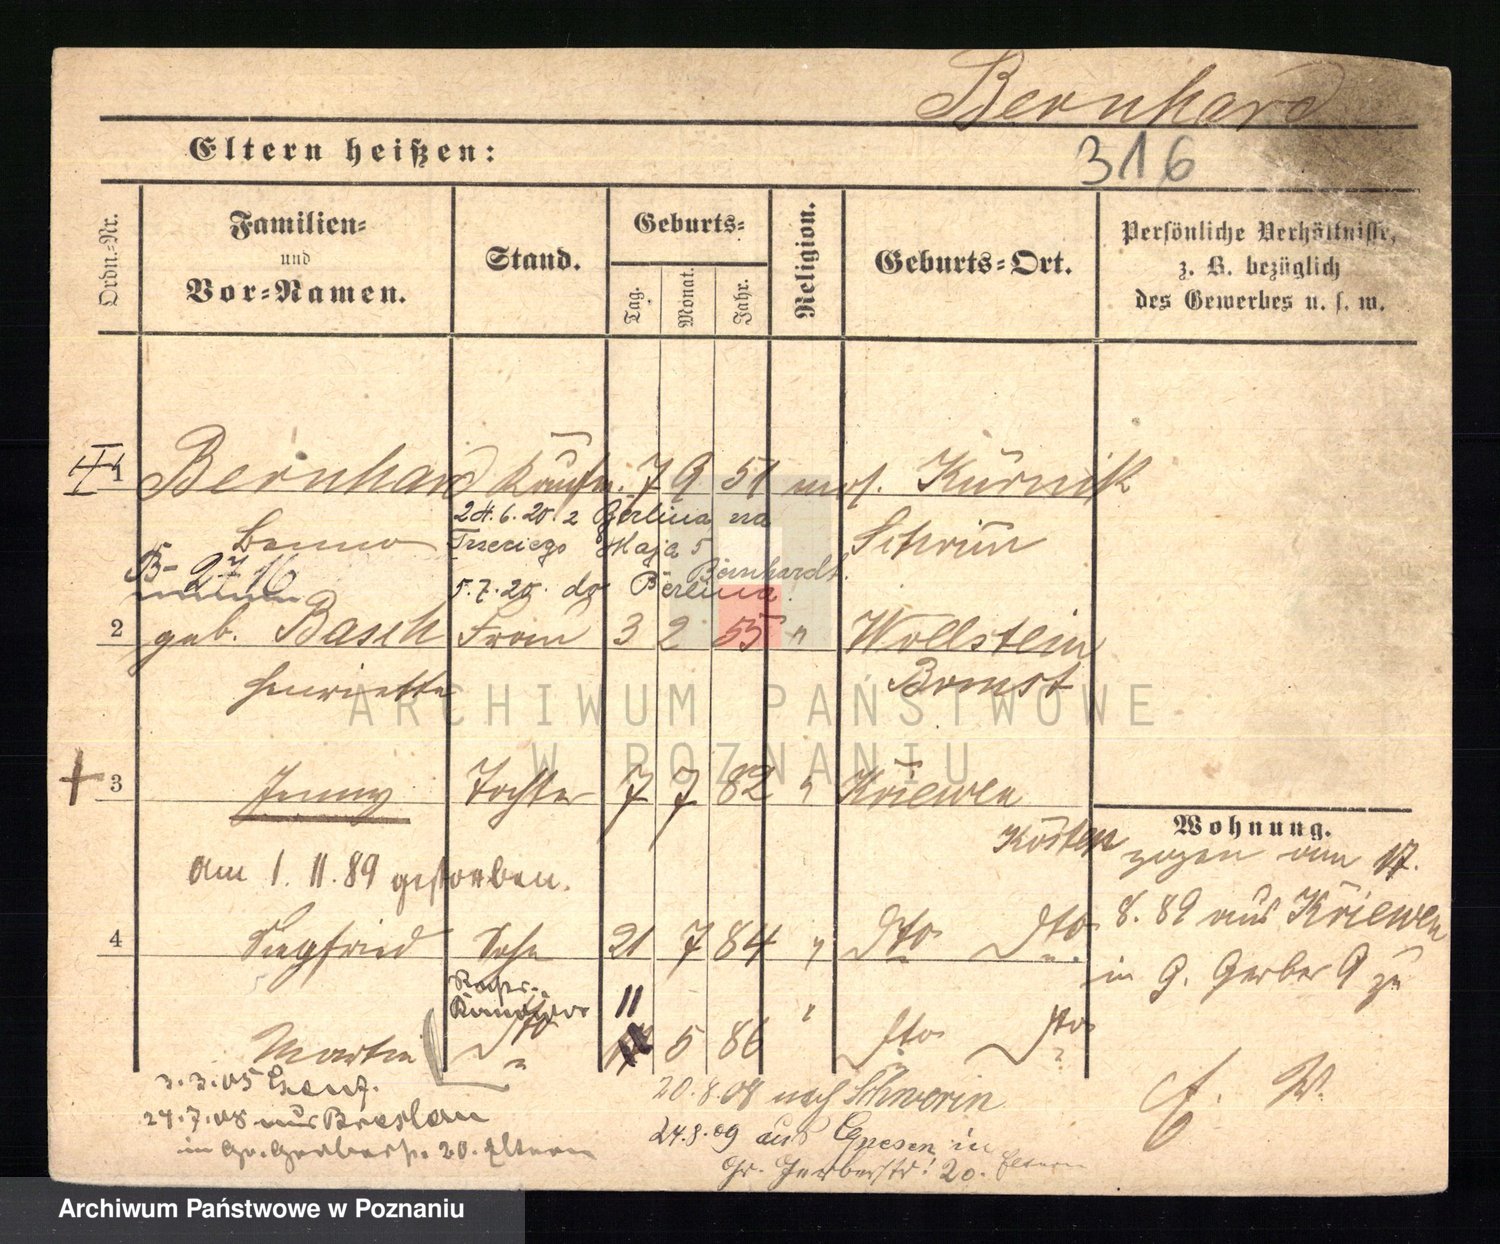 Bernhard
Eltern heißen:
316
Ordn.-Nr.
Familien-
und
Vor-Namen.
Stand.
Geburts-
Tag.
Monat.
Jahr.
Religion.
Geburts-Ort.
Persönliche Verhältnisse,
z. B. bezüglich
des Gewerbes u. s. w.
1 Bernhard Kaufm. 7 9 51 mos. Kurnik
24.6.20. z Berlina na
Benno Trzeciego Maja 5 Schrim
B-2716 Bernhardt.
5.7.20. do Berlina.
2 geb. Basch Frau 3 2 55 " Wollstein
Henriette Bomst
ARCHIWUM PAŃSTWOWE
W POZNANIU
3 Jenny Tochter 7 7 82 " Kriewen
Kosten
Wohnung.
zogen am 17.
am 1. 11. 89 gestorben.
8. 89 aus Kriewen
4 Siegfried Sohn 21 7 84 " dto dto
in G. Gerber 9 zu
11
Martin dto 5 86 " dto dto
E. W.
3.3.05
20.8.08 nach Schwerin
24.7.08 aus Breslau
24.8.09 aus Gnesen in
in Gr. Gerberstr. 20. Eltern
Gr. Gerberstr. 20. Eltern
Archiwum Państwowe w Poznaniu